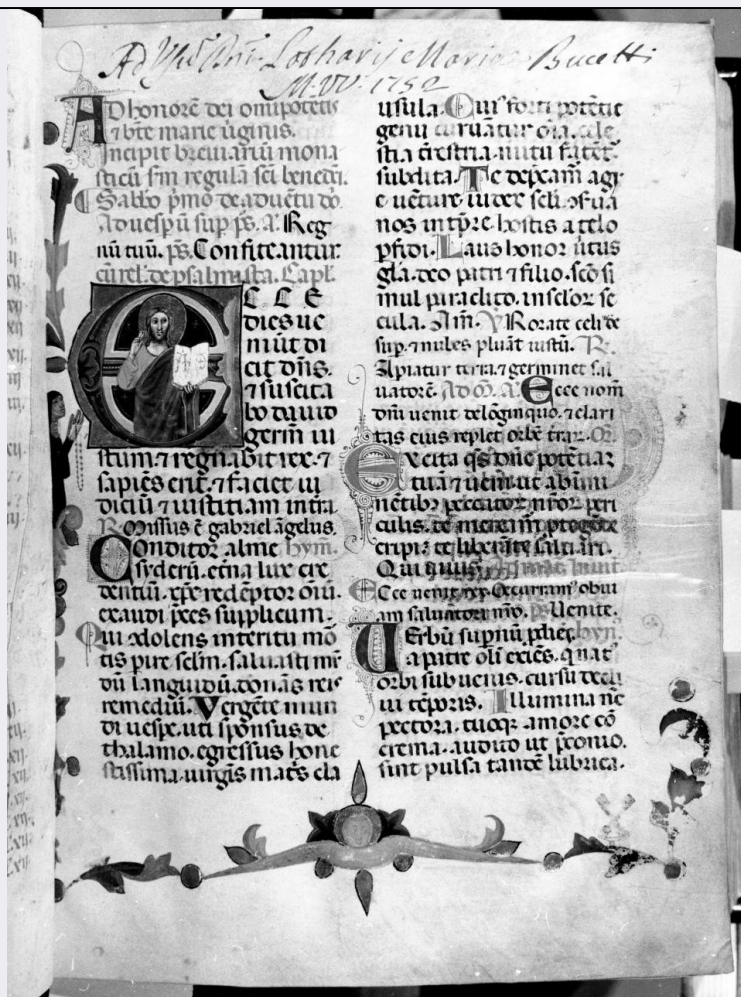 Ad Lotharij Maria Bucetti
1752
AD honorē dei om̄ipotētis
⁊ bte marie ūginis.
Incipit breuiariū mona
sticū s̄m regulā sc̄i benedci.
Sabbo p̄mo de aduētu dō.
Ad uesp̄ū sup ps. a. Reg
nū tuū. ps. Confiteantur.
cū rel. de psalmista. Capl.
ECCE
dies ue
niūt di
cit dn̄s.
⁊ suscita
bo dauid
germ̄ iu
stum ⁊ regnabit rex. ⁊
sapiēs erit. ⁊ faciet iu
diciū ⁊ iustitiam in tr̄a.
R. Missus ē gabriel āgelus.
Conditor alme hym.
syderū. etn̄a lux cre
dentiū. xp̄e redēptor oīū.
exaudi p̄ces supplicum.
Qui 9dolens interitu mō
tis pire sclm̄. saluasti mū
dū languidū. donās reis
remediū. Vergēte mun
di uespe. uti sponsus de
thalamo. egressus hone
stissima. uirgīs mat̄s cla
usula. Cuius forti potētie
genu curuātur oīa. cele
stia t̄restria. nutu fatēt̄
subdita. Te dep̄cam̄ agi
e uēture iudex scli. 9serua
nos in tp̄re. hostis a telo
p̄fidi. Laus honor ūtus
gl̄a. deo patri ⁊ filio. sc̄o si
mul paraclito. in sclor̄ se
cula. Am̄. V Rorate celi de
sup. ⁊ nubes pluāt iustū. R.
Apiatur terra. ⁊ germinet sal
uatorē. Ad M. A. Ecce nom̄
dn̄i uenit de lōginquo. ⁊ clari
tas eius replet orbē t̄rar̄. Or.
Excita qs dn̄e potētiā
tuā ⁊ ueni. ut ab im̄i
nētibꝫ peccator̄ nr̄or̄ peri
culis. te
eripi. te liberāte saluari.
Qui uiuis.
Ecce uenit rex. Occuram̄ obui
am saluatori nr̄o. ps. Uenite.
Uerbū sup̄nū p̄diēs. hyn.
a patre olī exiēs. q̇ nat̄
orbi subuenis. cursu decli
ui tēporis. Illumina nc̄
pectora. tuoqꝫ amore cō
crema. audito ut p̄conio.
sint pulsa tandē lubrica.